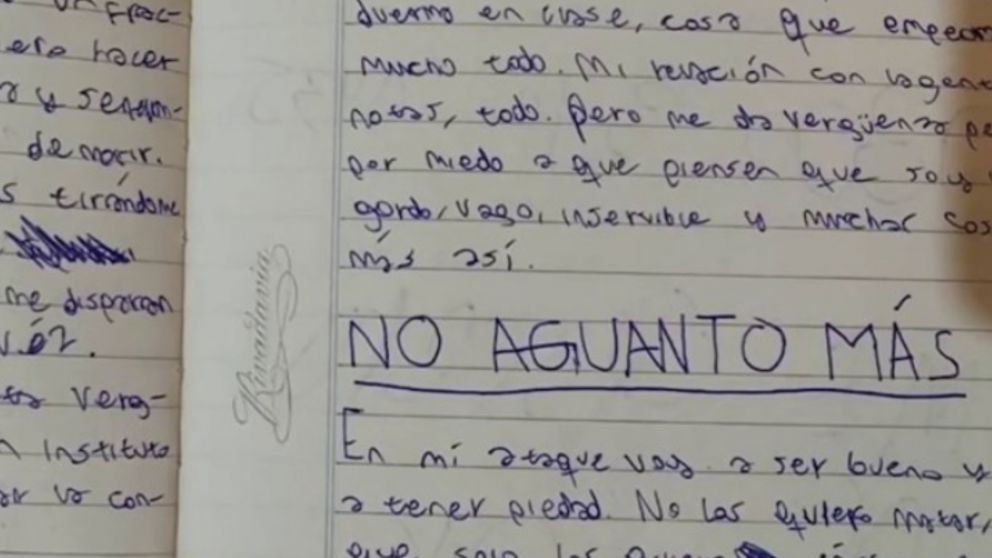 un frac-
ero hacer
a y
de morir.
s tirándome
me disparan
vez.
ta verg-
n instituto
ar la con-
Rivadavia
duermo en clase, cosa que empeora
mucho todo. Mi relación con la gente
notas, todo. Pero me da vergüenza pe
por miedo a que piensen que soy
gordo, vago, inservible y muchas cos
más así.
NO AGUANTO MÁS
En mi ataque voy a ser bueno y
a tener piedad. No los quiero matar,
que solo los